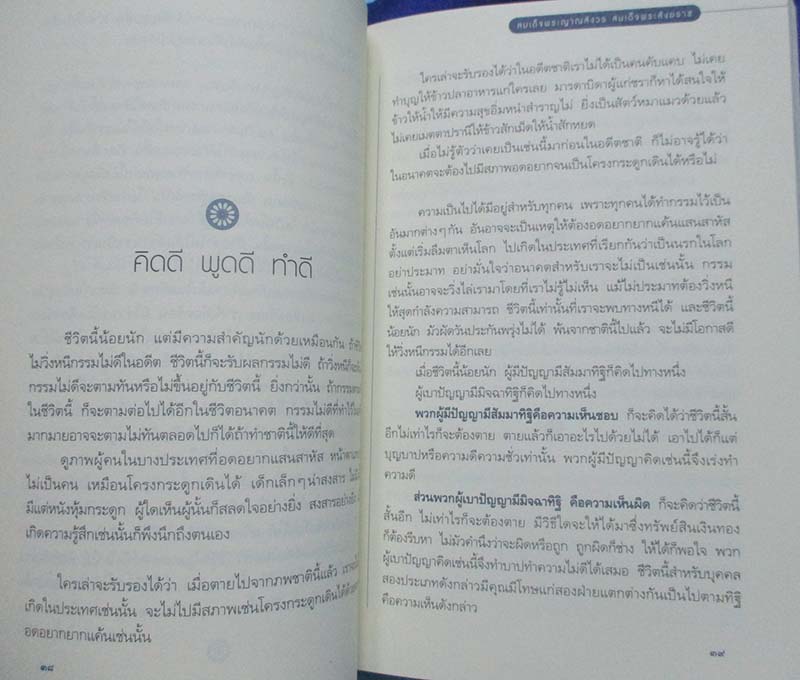 คิดดี พูดดี ทำดี
ชีวิตนี้น้อยนัก แต่มีความสำคัญนักด้วยเหมือนกัน
ไม่วิ่งหนีกรรมไม่ดีในอดีต ชีวิตนี้ก็จะรับผลกรรมไม่ดี ถ้าวิ่งหนี
กรรมไม่ดีจะตามทันหรือไม่ขึ้นอยู่กับชีวิตนี้ ยิ่งกว่านั้น ถ้ากรรม
ในชีวิตนี้ ก็จะตามต่อไปได้อีกในชีวิตอนาคต กรรมไม่ดีที่ทำไว้
มากมายอาจจะตามไม่ทันตลอดไปก็ได้ถ้าทำชาตินี้ให้ดีที่สุด
ดูภาพผู้คนในบางประเทศที่อดอยากแสนสาหัส
ไม่เป็นคน เหมือนโครงกระดูกเดินได้ เด็กเล็กๆน่าสงสาร
มีแต่หนังหุ้มกระดูก ผู้ใดเห็นผู้นั้นก็สลดใจอย่างยิ่ง สงสารอย่างยิ่ง
เกิดความรู้สึกเช่นนั้นก็พึงนึกถึงตนเอง
ใครเล่าจะรับรองได้ว่า เมื่อตายไปจากภพชาตินี้แล้ว
เกิดในประเทศเช่นนั้น จะไม่ไปมีสภาพเช่นโครงกระดูกเดินได้
อดอยากยากแค้นเช่นนั้น
๓๘
สมเด็จพระญาณสังวร สมเด็จพระสังฆราช
ใครเล่าจะรับรองได้ว่าในอดีตชาติเราไม่ได้เป็นคนคับแคบ ไม่เคย
ทำบุญให้ข้าวปลาอาหารแก่ใครเลย มารดาบิดาผู้แก่ชราก็หาได้สนใจให้
ข้าวให้น้ำให้มีความสุขอิ่มหนำสำราญไม่ ยิ่งเป็นสัตว์หมาแมวด้วยแล้ว
ไม่เคยเมตตาปรานีให้ข้าวสักเม็ดให้น้ำสักหยด
เมื่อไม่รู้ตัวว่าเคยเป็นเช่นนี้มาก่อนในอดีตชาติ ก็ไม่อาจรู้ได้ว่า
ในอนาคตจะต้องไปมีสภาพอดอยากจนเป็นโครงกระดูกเดินได้หรือไม่
ความเป็นไปได้มีอยู่สำหรับทุกคน เพราะทุกคนได้ทำกรรมไว้เป็น
อันมากต่างๆกัน อันอาจจะเป็นเหตุให้ต้องอดอยากยากแค้นแสนสาหัส
ตั้งแต่เริ่มลืมตาเห็นโลก ไปเกิดในประเทศที่เรียกกันว่าเป็นนรกในโลก
อย่าประมาท อย่ามั่นใจว่าอนาคตสำหรับเราจะไม่เป็นเช่นนั้น กรรม
เช่นนั้นอาจจะวิ่งไล่เรามาโดยที่เราไม่รู้ไม่เห็น แม้ไม่ประมาทต้องวิ่งหนี
ให้สุดกำลังความสามารถ ชีวิตนี้เท่านั้นที่เราจะพบทางหนีได้ และชีวิตนี้
น้อยนัก มัวผัดวันประกันพรุ่งไม่ได้ พ้นจากชาตินี้ไปแล้ว จะไม่มีโอกาสดี
ให้วิ่งหนีกรรมได้อีกเลย
เมื่อชีวิตนี้น้อยนัก ผู้มีปัญญามีสัมมาทิฐิก็คิดไปทางหนึ่ง
ผู้เบาปัญญามีมิจฉาทิฐิก็คิดไปทางหนึ่ง
พวกผู้มีปัญญามีสัมมาทิฐิคือความเห็นชอบ ก็จะคิดได้ว่าชีวิตนี้สั้น
อีกไม่เท่าไรก็จะต้องตาย ตายแล้วก็เอาอะไรไปด้วยไม่ได้ เอาไปได้ก็แต่
บุญบาปหรือความดีความชั่วเท่านั้น พวกผู้มีปัญญาคิดเช่นนี้จึงเร่งทำ
ความดี
ส่วนพวกผู้เบาปัญญามีมิจฉาทิฐิ คือความเห็นผิด ก็จะคิดว่าชีวิตนี้
สั้นอีก ไม่เท่าไรก็จะต้องตาย มีวิธีใดจะให้ได้มาซึ่งทรัพย์สินเงินทอง
ก็ต้องรีบหา ไม่มัวคำนึงว่าจะผิดหรือถูก ถูกผิดก็ช่าง ให้ได้ก็พอใจ พวก
ผู้เบาปัญญาคิดเช่นนี้จึงทำบาปทำความไม่ดีได้เสมอ ชีวิตนี้สำหรับบุคคล
สองประเภทดังกล่าวมีคุณมีโทษแก่สองฝ่ายแตกต่างกันเป็นไปตามทิฐิ
คือความเห็นดังกล่าว
๓๙